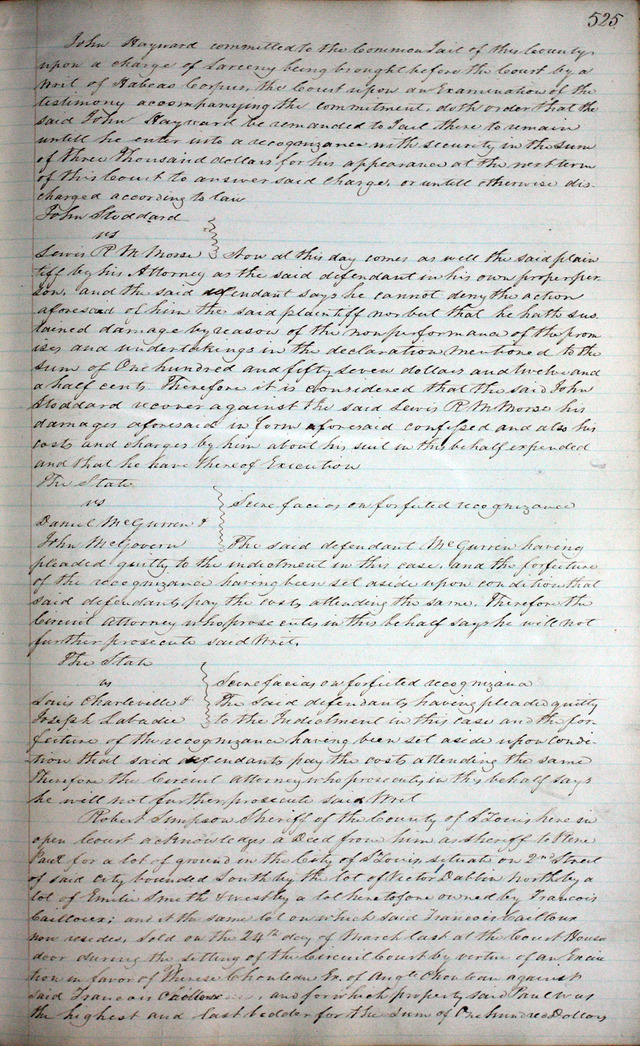 525
John Hayward committed to the Common Jail of this County
upon a charge of Larceny being brought before the Court by a
Writ of Habeas Corpus, the Court upon an Examination of the
testimony accompanying the commitment, doth order that the
said John Hayward be remanded to Jail there to remain
untill he enter into a recognizance with security in the sum
of three thousand dollars for his appearance at the next term
of this Court to answer said charge, or untill otherwise dis-
charged according to law
John Stoddard
vs
Lewis R McMorse Now at this day comes as well the said plain
tiff by his Attorney as the said defendant in his own proper per
son, and the said defendant says he cannot deny the action
aforesaid of him the said plaintiff nor but that he hath sus
tained damage by reason of the nonperformance of the prom
ises and undertakings in the declaration mentioned to the
sum of One hundred and fifty seven dollars and twelve and
a half cents. Therefore it is considered that the said John
Stoddard recover against the said Lewis R McMorse his
damages aforesaid in form aforesaid confessed and also his
costs and charges by him about his suit in this behalf expended
and that he have thereof Execution
The State
vs Scire facias on forfeited recognizance
Daniel McGurren &
John McGovern The said defendant McGurren having
pleaded guilty to the indictment in this case, and the forfeiture
of the recognizance having been set aside upon condition that
said defendants pay the costs attending the same. Therefore the
Circuit Attorney who prosecutes in this behalf says he will not
further prosecute said Writ.
The State
vs Scire facias on forfeited recognizance
Louis Charleville & The said defendants having pleaded guilty
Joseph Labadie to the Indictment in this case and the for-
feiture of the recognizance having been set aside upon condi-
tion that said defendants pay the costs attending the same
therefore the Circuit Attorney who prosecutes in this behalf says
he will not further prosecute said Writ
Robert Simpson Sheriff of the County of St Louis here in
open Court acknowledges a Deed from him as sheriff to Rene
Paul for a lot of ground in the City of St Louis, situate on 2nd Street
of said city bounded South by the lot of Victor Dablin North by a
lot of Emilie Smith & west by a lot heretofore owned by Francois
Cailloux; and is the same lot on which said Francois Cailloux
now resides, sold on the 24th day of March last at the Court House
door during the sitting of the Circuit Court by virtue of an Execu
tion in favor of Therese Chouteau Ex. of Augte Chouteau against
said Francois Cailloux, and for which property said Paul was
the highest and last bedder for the sum of One hundred Dollars